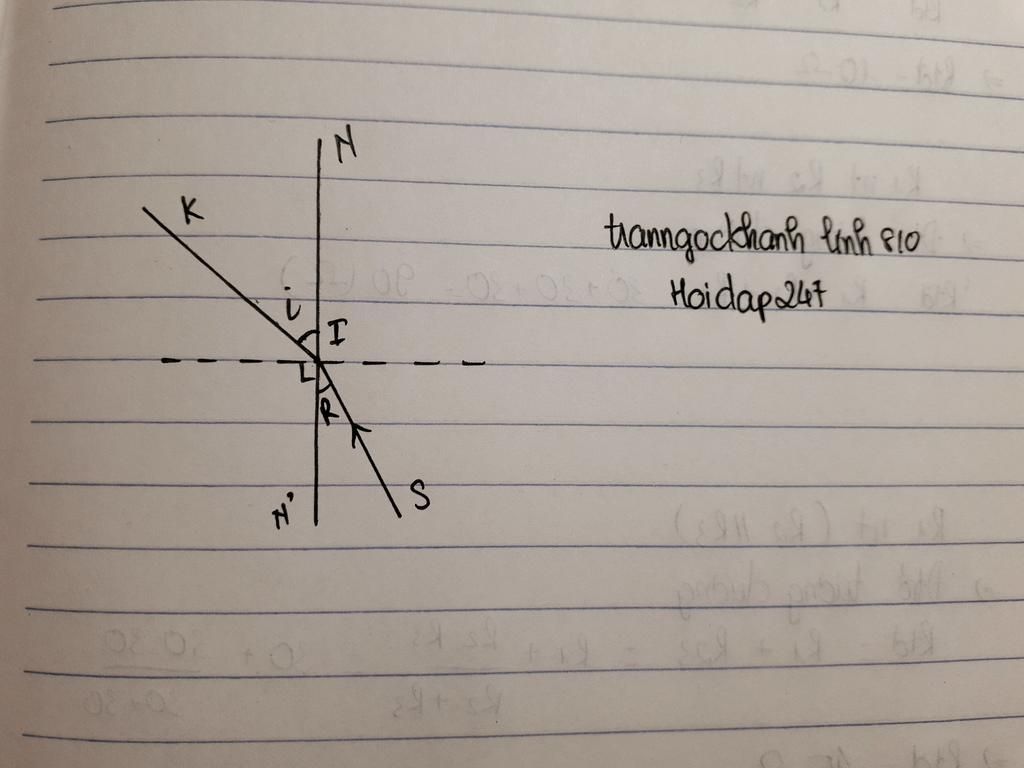 N
K
i
I
R
N'
S
tranngockhanh linh 810
Hoidap247